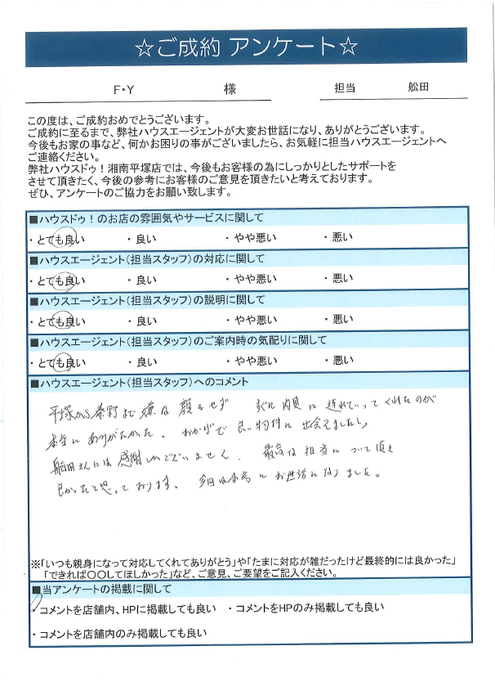 ☆ご成約 アンケート☆
F・Y 様 担当 舩田
この度は、ご成約おめでとうございます。
ご成約に至るまで、弊社ハウスエージェントが大変お世話になり、ありがとうございます。
今後もお家の事など、何かお困りの事がございましたら、お気軽に担当ハウスエージェントへ
ご連絡ください。
弊社ハウスドゥ！湘南平塚店では、今後もお客様の為にしっかりとしたサポートを
させて頂きたく、今後の参考にお客様のご意見を頂きたいと考えております。
ぜひ、アンケートのご協力をお願い致します。
■ハウスドゥ！のお店の雰囲気やサービスに関して
・とても良い ・良い ・やや悪い ・悪い
■ハウスエージェント（担当スタッフ）の対応に関して
・とても良い ・良い ・やや悪い ・悪い
■ハウスエージェント（担当スタッフ）の説明に関して
・とても良い ・良い ・やや悪い ・悪い
■ハウスエージェント（担当スタッフ）のご案内時の気配りに関して
・とても良い ・良い ・やや悪い ・悪い
■ハウスエージェント（担当スタッフ）へのコメント
平塚から秦野まで嫌な顔をせず すぐに内見に連れていってくれたのが
本当にありがたかった。おかげで良い物件に出会えましたし、
舩田さんには感謝しかございません。最高な担当について頂き
良かったと思っております。今回は本当にお世話になりました。
※「いつも親身になって対応してくれてありがとう」や「たまに対応が雑だったけど最終的には良かった」
「できれば〇〇してほしかった」など、ご意見、ご要望をご記入ください。
■当アンケートの掲載に関して
・コメントを店舗内、HPに掲載しても良い ・コメントをHPのみ掲載しても良い
・コメントを店舗内のみ掲載しても良い